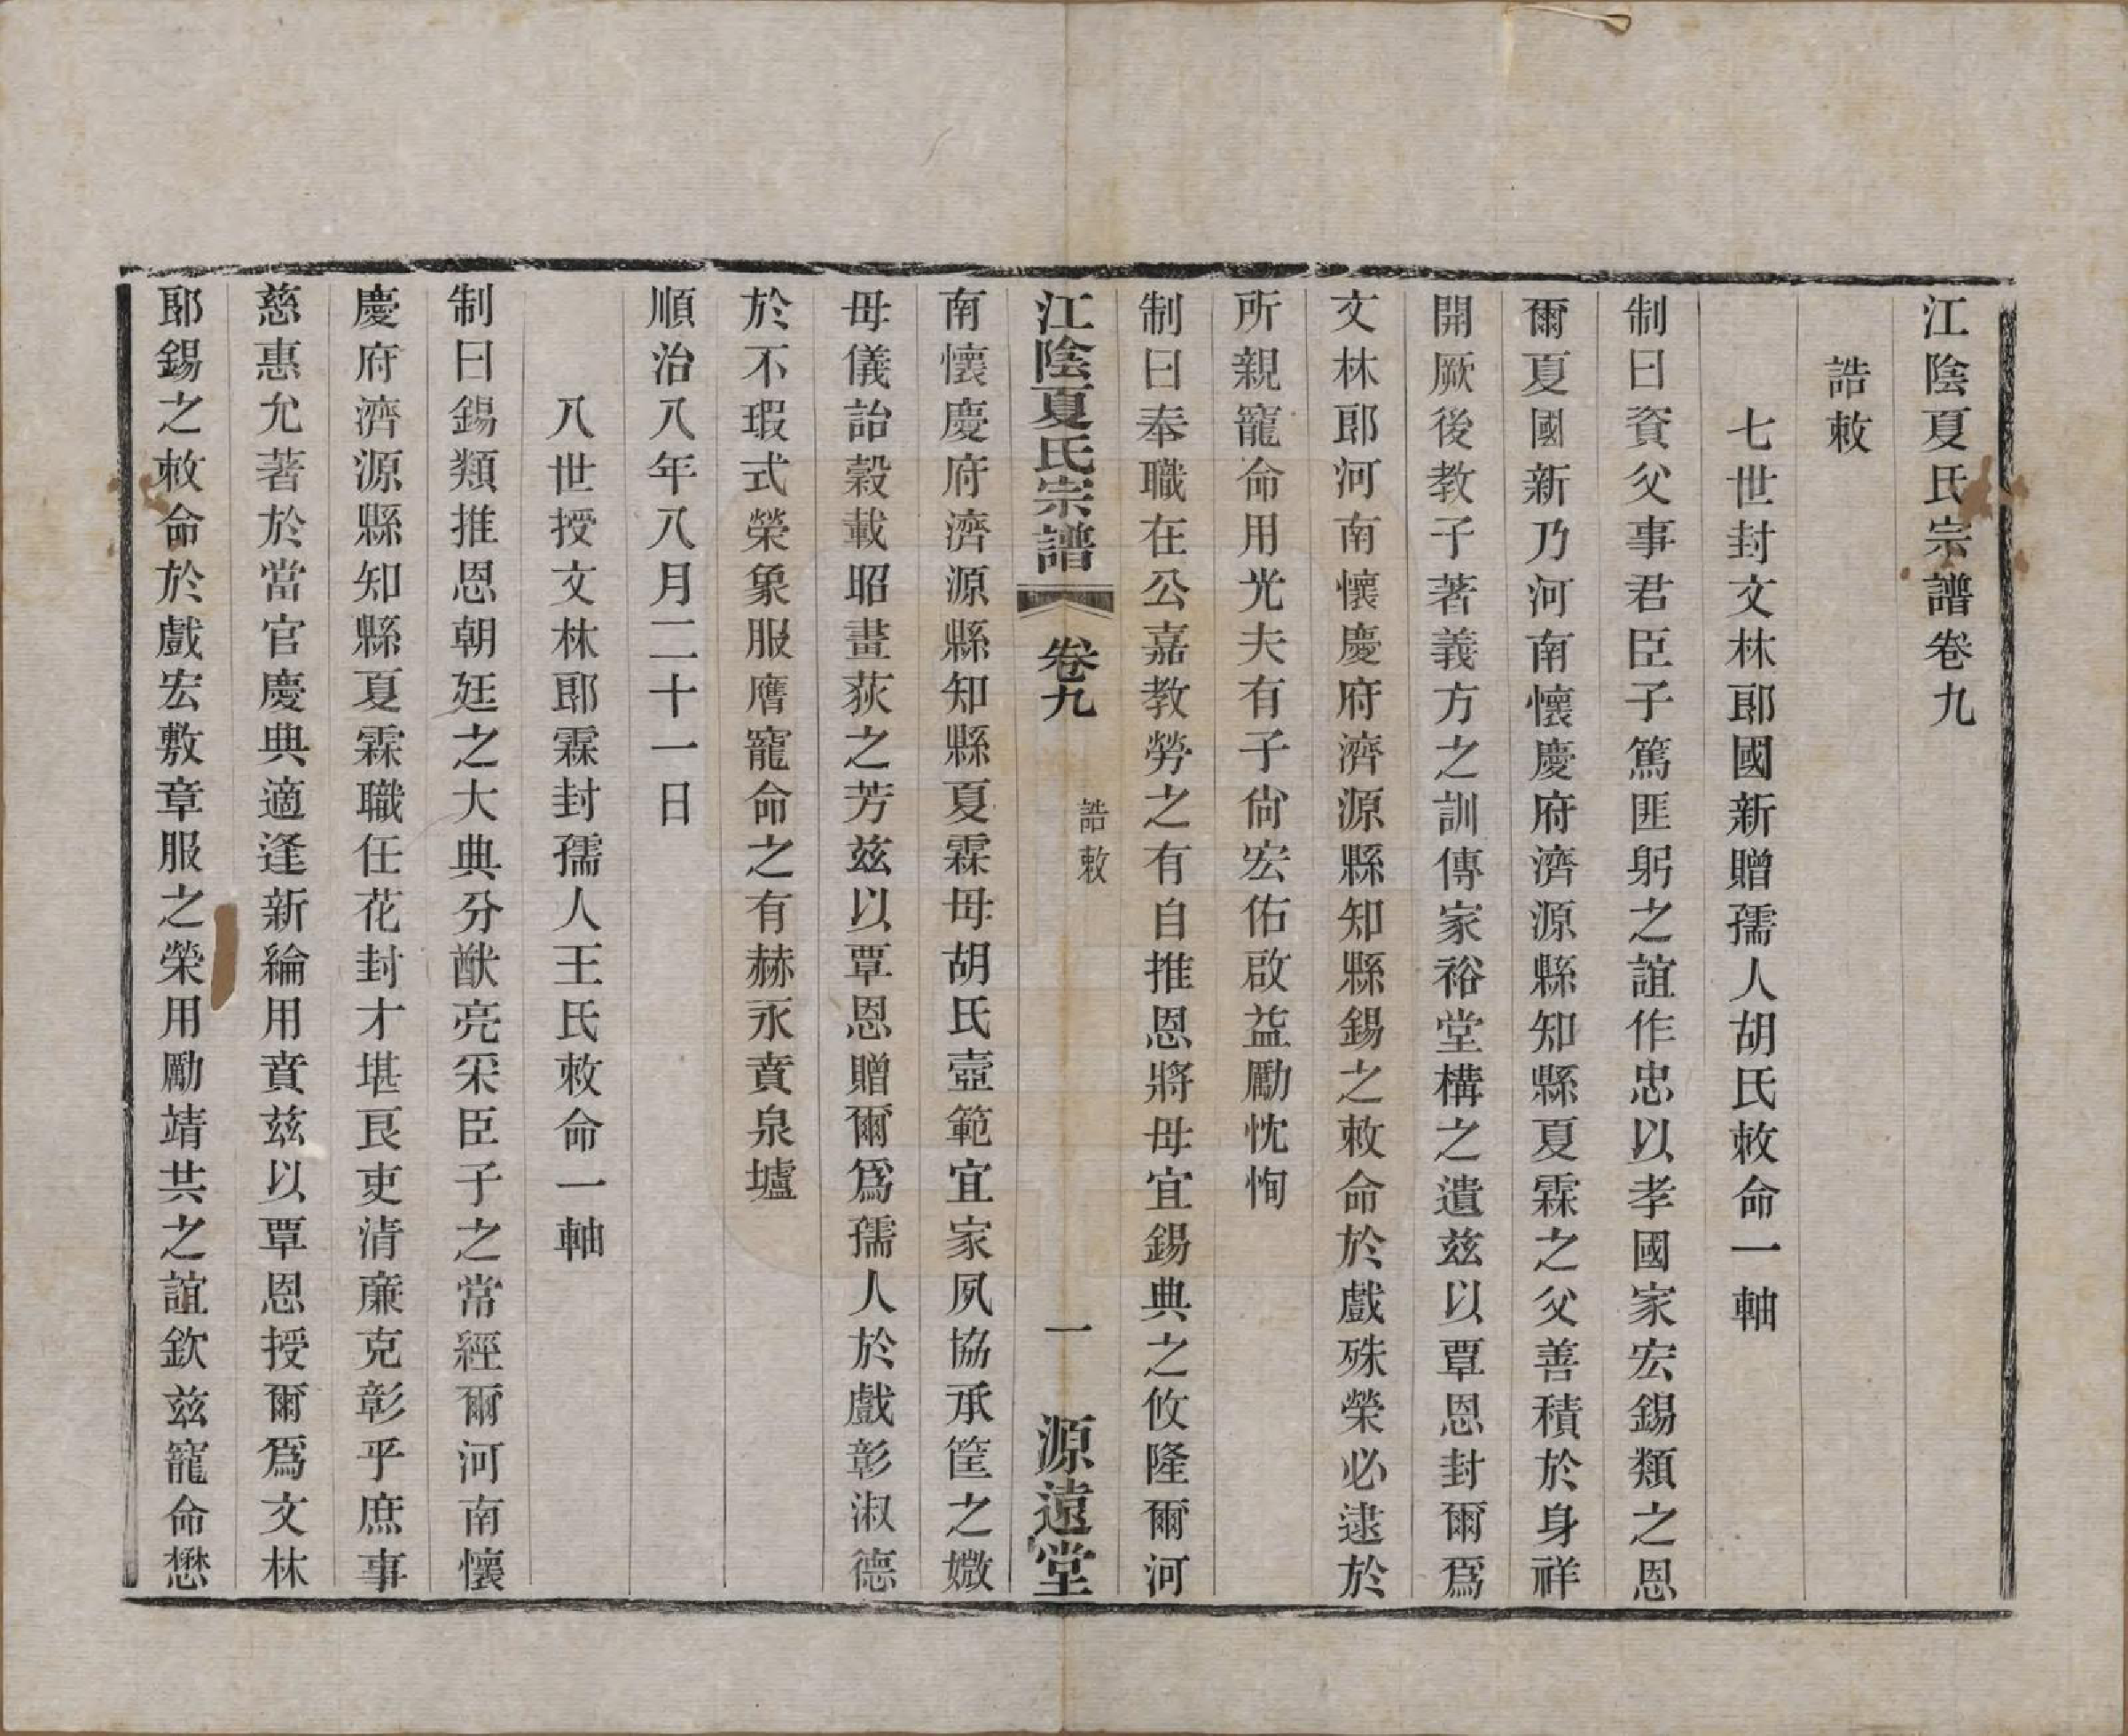 江陰夏氏宗譜卷九
誥敕
七世封文林郎國新贈孺人胡氏敕命一軸
制曰資父事君臣子篤匪躬之誼作忠以孝國家宏錫類之恩
爾夏國新乃河南懷慶府濟源縣知縣夏霖之父善積於身祥
開厥後教子著義方之訓傳家裕堂構之遺玆以覃恩封爾爲
文林郎河南懷慶府濟源縣知縣錫之敕命於戲殊榮必逮於
所親寵命用光夫有子尙宏佑啟益勵忱恂
制曰奉職在公嘉教勞之有自推恩將母宜錫典之攸隆爾河
江陰夏氏宗譜 卷九 誥敕 一 源遠堂
南懷慶府濟源縣知縣夏霖母胡氏壼範宜家夙協承筐之媺
母儀詒穀載昭畫荻之芳玆以覃恩贈爾爲孺人於戲彰淑德
於不瑕式榮象服膺寵命之有赫永賁泉壚
順治八年八月二十一日
八世授文林郎霖封孺人王氏敕命一軸
制曰錫類推恩朝廷之大典分猷亮采臣子之常經爾河南懷
慶府濟源縣知縣夏霖職任花封才堪良吏清廉克彰乎庶事
慈惠允著於當官慶典適逢新綸用賁玆以覃恩授爾爲文林
郎錫之敕命於戲宏敷章服之榮用勵靖共之誼欽玆寵命懋